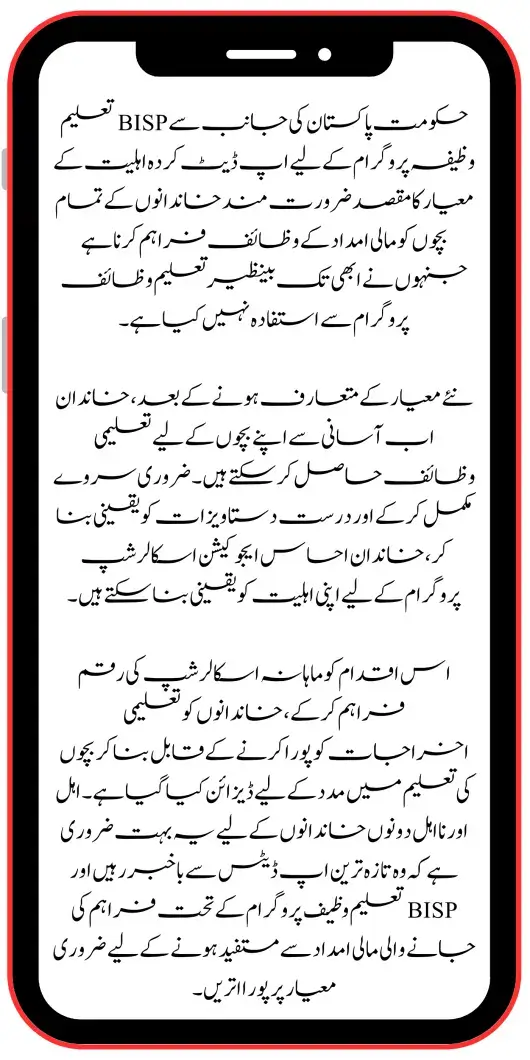 حکومت پاکستان کی جانب سے BISP تعلیم
وظیفہ پروگرام کے لیے اپ ڈیٹ کردہ اہلیت کے
معیار کا مقصد ضرورت مند خاندانوں کے تمام
بچوں کو مالی امداد کے وظائف فراہم کرنا ہے
جنہوں نے ابھی تک بینظیر تعلیم وظائف
پروگرام سے استفادہ نہیں کیا ہے۔
نئے معیار کے متعارف ہونے کے بعد، خاندان
اب آسانی سے اپنے بچوں کے لیے تعلیمی
وظائف حاصل کر سکتے ہیں۔ ضروری سروے
مکمل کر کے اور درست دستاویزات کو یقینی بنا
کر، خاندان احساس ایجوکیشن اسکالرشپ
پروگرام کے لیے اپنی اہلیت کو یقینی بنا سکتے ہیں۔
اس اقدام کو ماہانہ اسکالرشپ کی رقم
فراہم کر کے، خاندانوں کو تعلیمی
اخراجات کو پورا کرنے کے قابل بنا کر بچوں
کی تعلیم میں مدد کے لیے ڈیزائن کیا گیا ہے۔ اہل
اور نااہل دونوں خاندانوں کے لیے یہ بہت ضروری
ہے کہ وہ تازہ ترین اپ ڈیٹس سے باخبر رہیں اور
BISP تعلیم وظیف پروگرام کے تحت فراہم کی
جانے والی مالی امداد سے مستفید ہونے کے لیے ضروری
معیار پر پورا اتریں۔